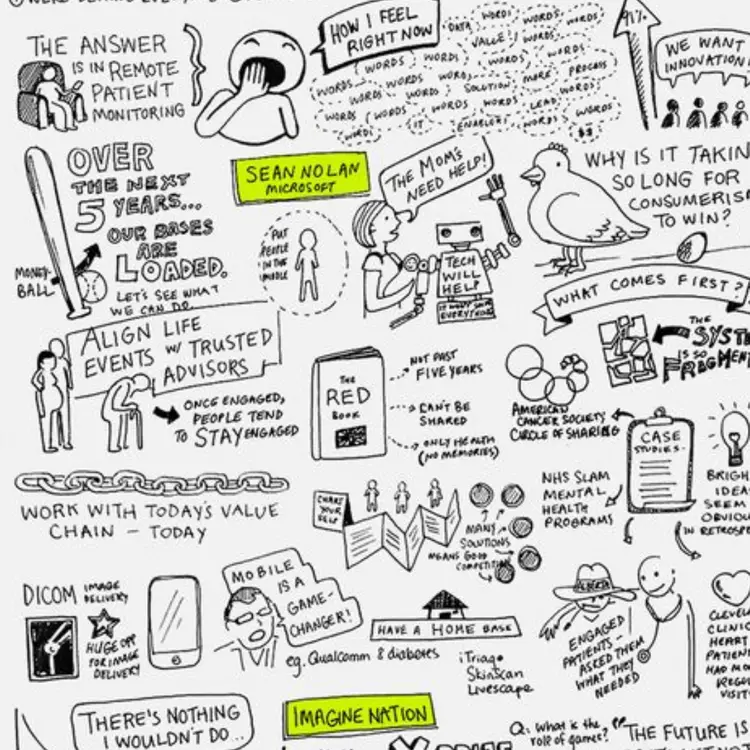 THE ANSWER
IS IN REMOTE
PATIENT
MONITORING
HOW I FEEL
RIGHT NOW
DATA
WORDS
WORDS
WORDS
VALUE
WORDS
WORDS
WORDS
WORDS
WORDS
WORDS
WORDS
WORDS
WORDS
SOLUTION
MORE
PROCESS
WORDS
WORDS
WORDS
WORDS
LEAD
WORDS
IT
ENABLE
WORDS
$$
91%
WE WANT
INNOVATION!
OVER
THE NEXT
5 YEARS...
OUR BASES
ARE
LOADED.
LET'S SEE WHAT
WE CAN DO
MONEY-
BALL
SEAN NOLAN
MICROSOFT
PUT
PEOPLE
IN THE
MIDDLE
THE MOM'S
NEED HELP!
TECH
WILL
HELP
IT WON'T SOLVE
EVERYTHING
WHY IS IT TAKIN
SO LONG FOR
CONSUMERIS
TO WIN?
WHAT COMES FIRST?
ALIGN LIFE
EVENTS w/ TRUSTED
ADVISORS
ONCE ENGAGED,
PEOPLE TEND
TO STAY ENGAGED
THE
RED
BOOK
NOT PAST
FIVE YEARS
CAN'T BE
SHARED
ONLY HEALTH
(NO MEMORIES)
THE
SYST
IS SO
FRAGMEN
AMERICAN
CANCER SOCIETY
CIRCLE OF SHARING
CASE
STUDIES
NHS SLAM
MENTAL
HEALTH
PROGRAMS
BRIGH
IDEA
SEEM
OBVIOU
IN RETROSPE
WORK WITH TODAY'S VALUE
CHAIN - TODAY
CHART
YOUR
SELF
MANY
SOLUTIONS
MEANS GOOD
COMPETITION
DICOM IMAGE
DELIVERY
HUGE OPP
FOR IMAGE
DELIVERY
MOBILE
IS A
GAME-
CHANGER!
eg. Qualcomm & diabetes
HAVE A HOME BASE
iTriage
SkinScan
Livescape
ALBERTA
ENGAGED
PATIENTS -
ASKED THEM
WHAT THEY
NEEDED
CLEVEL
CLINIC
HEART
PATIEN
HAD MO
REGU
VISIT
THERE'S NOTHING
I WOULDN'T DO...
IMAGINE NATION
Q: What is the
role of games?
"THE FUTURE IS